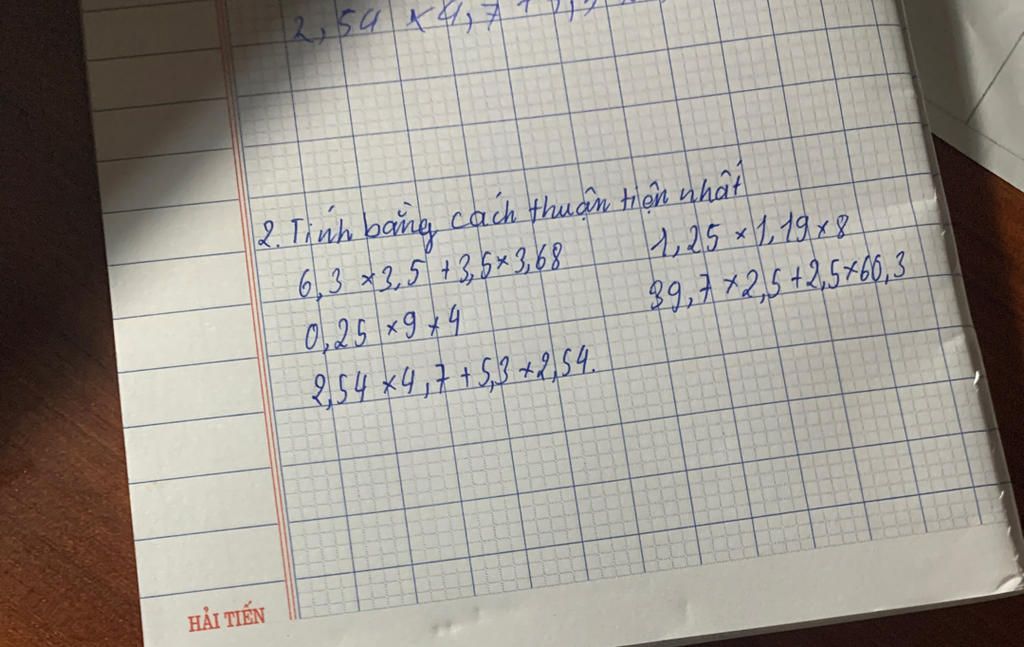 2,54 × 4,7 +
2. Tính bằng cách thuận tiện nhất
6,3 × 3,5 + 3,5 × 3,68
1,25 × 1,19 × 8
0,25 × 9 × 4
39,7 × 2,5 + 2,5 × 60,3
2,54 × 4,7 + 5,3 × 2,54.
HẢI TIẾN